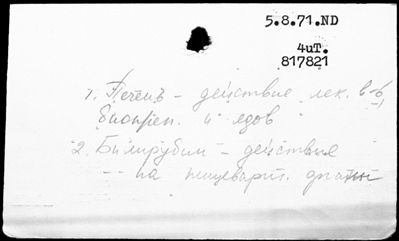 5.8.71.ND
4иТ.
817821
1. Печень - действие лек. в-в
биопреп. и ядов
2. Билирубин - действие
на пищеварит. органы